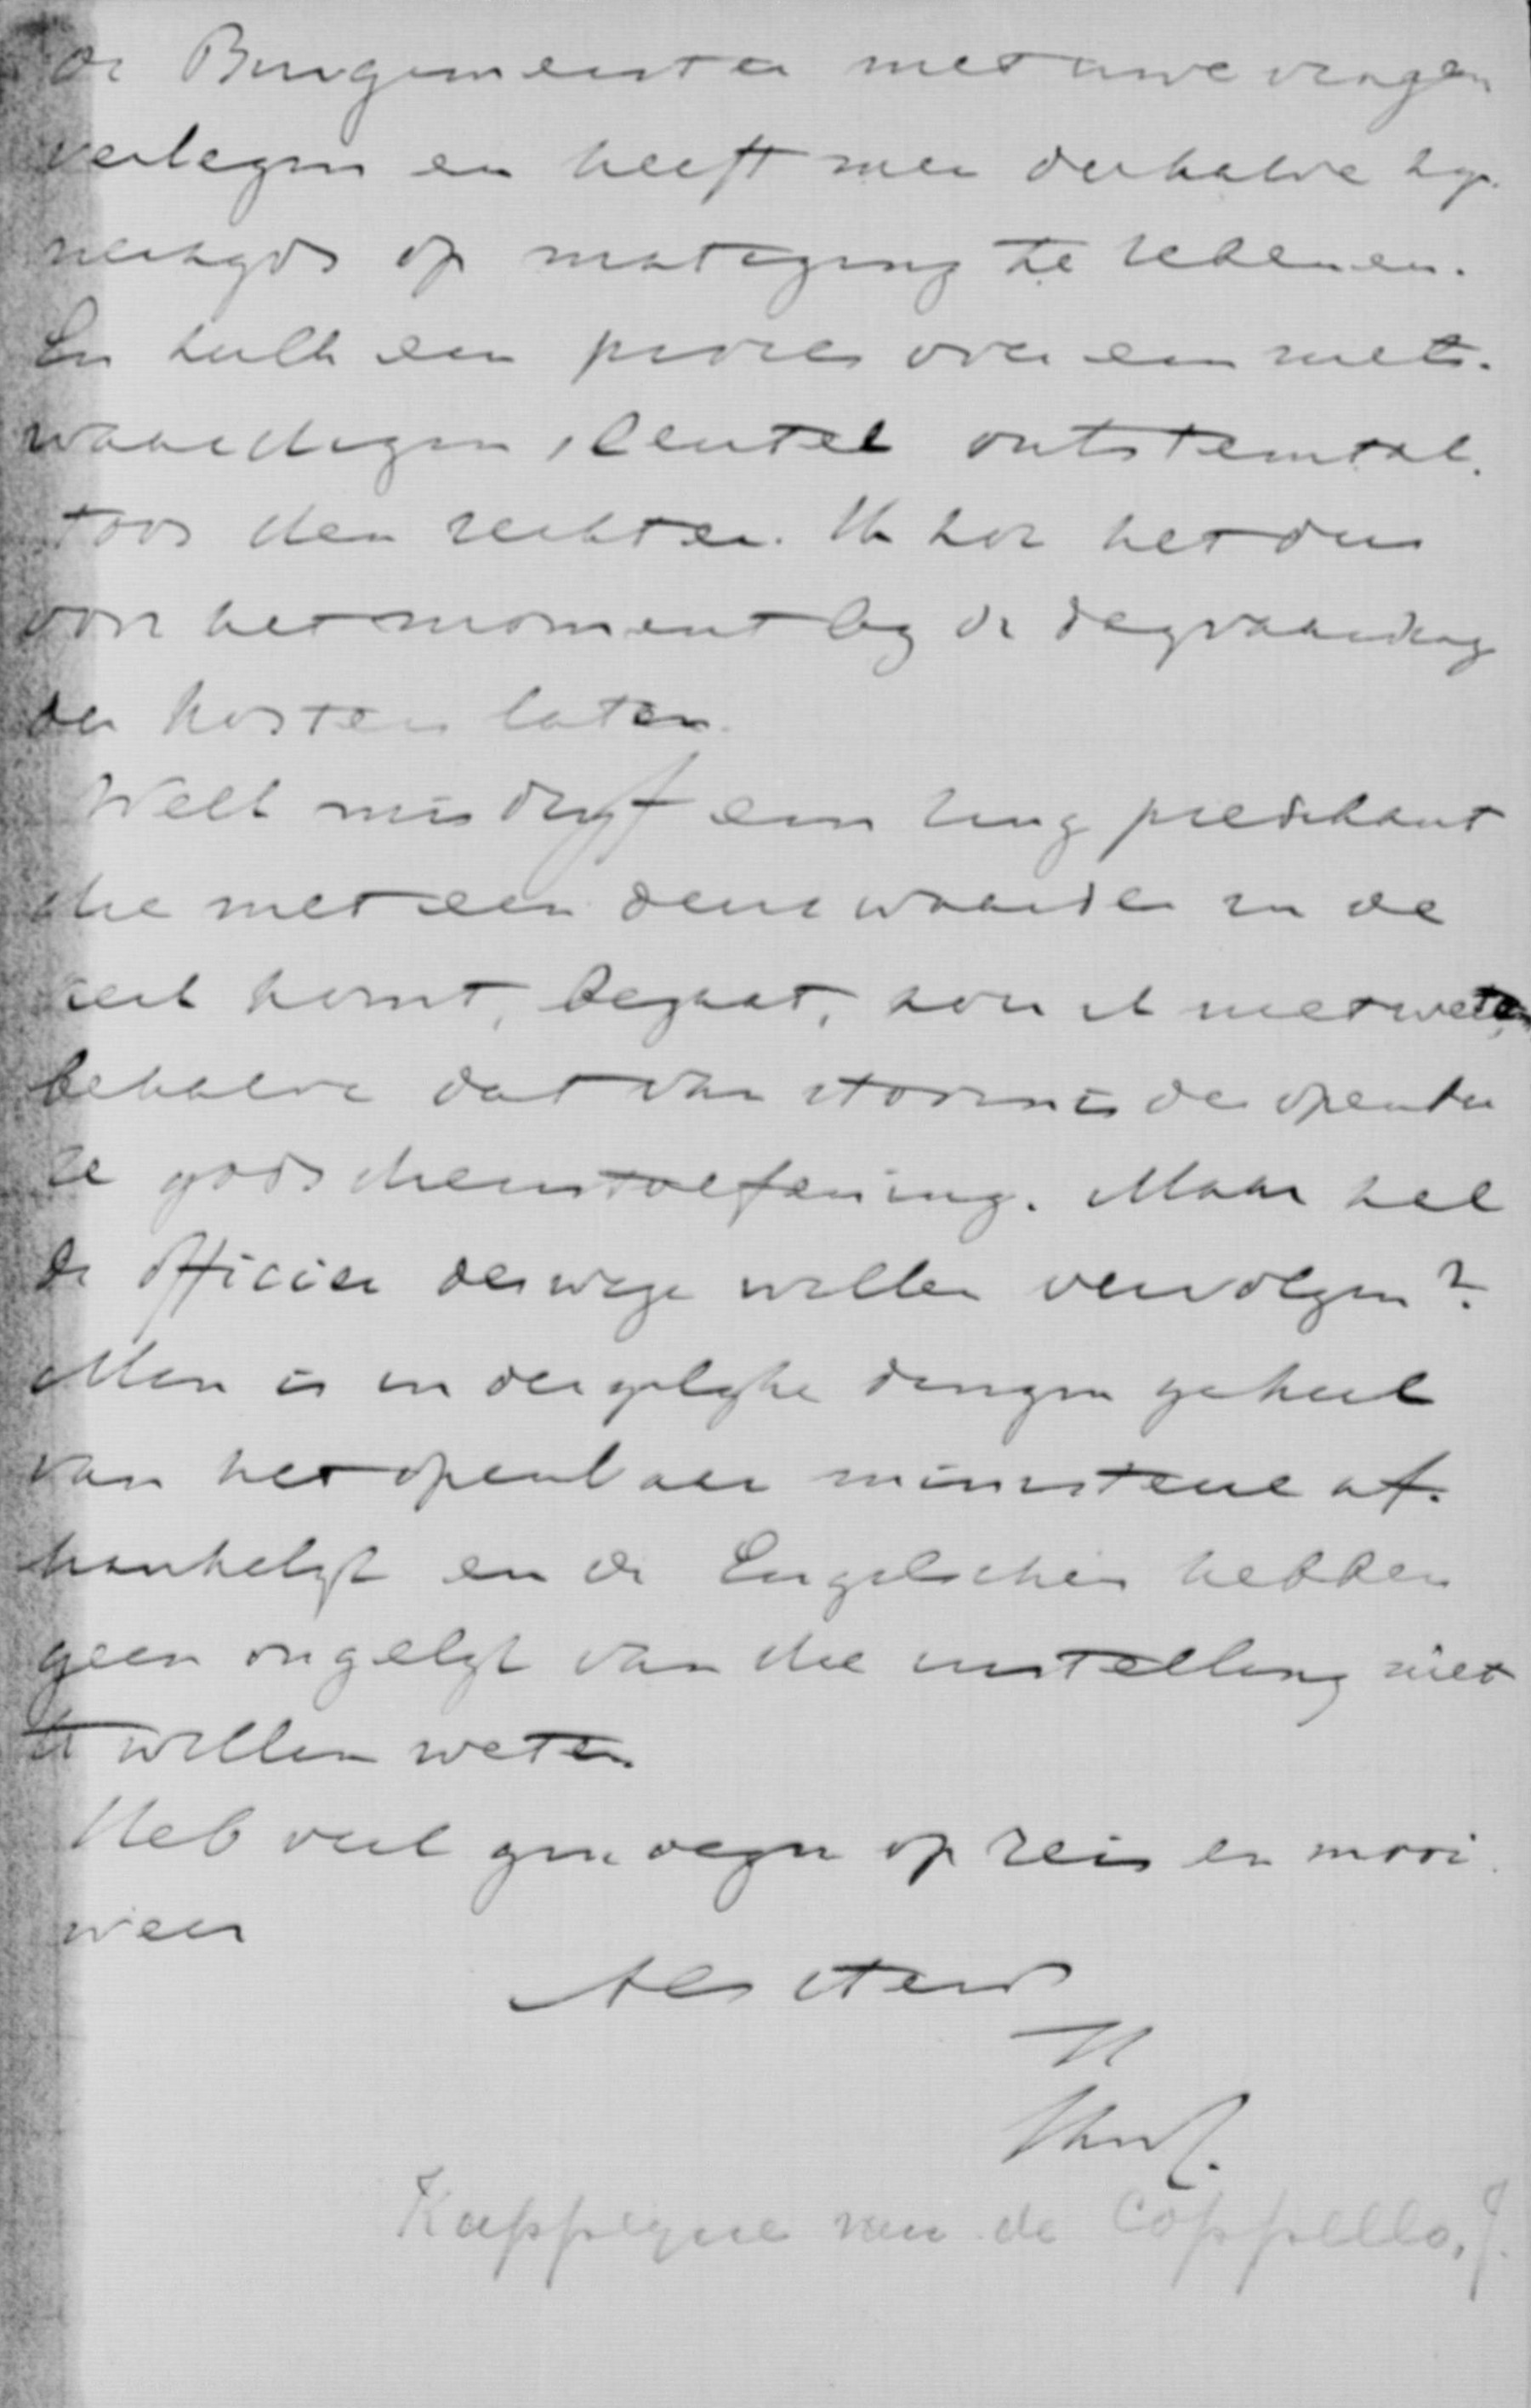 de Burgemeester met uwe vragen
verlegen en heeft men derhalve
op matiging te rekenen.
En zulk een proces over een niets-
waardigen sleutel ontstemt al-
toos den rechter. Ik zou het dus
voor het moment bij de dagvaarding
der kosten laten.
Welk misdrijf een leug predikant
die met een deurwaarder in de
kerk komt, begaat, zou ik niet weten,
behalve dat van stoornis der openba
re godsdienstoefening. Maar zal
de officier deswege willen vervolgen?
Men is in dergelijke dingen geheel
van het openbaar ministerie af-
hankelijk en de Engelschen hebben
geen ongelijk van die instelling niet
te willen weten
Heb veel genoegen op reis en mooi
weer
Als steeds
tt
Kappeyne van de Coppello, J.